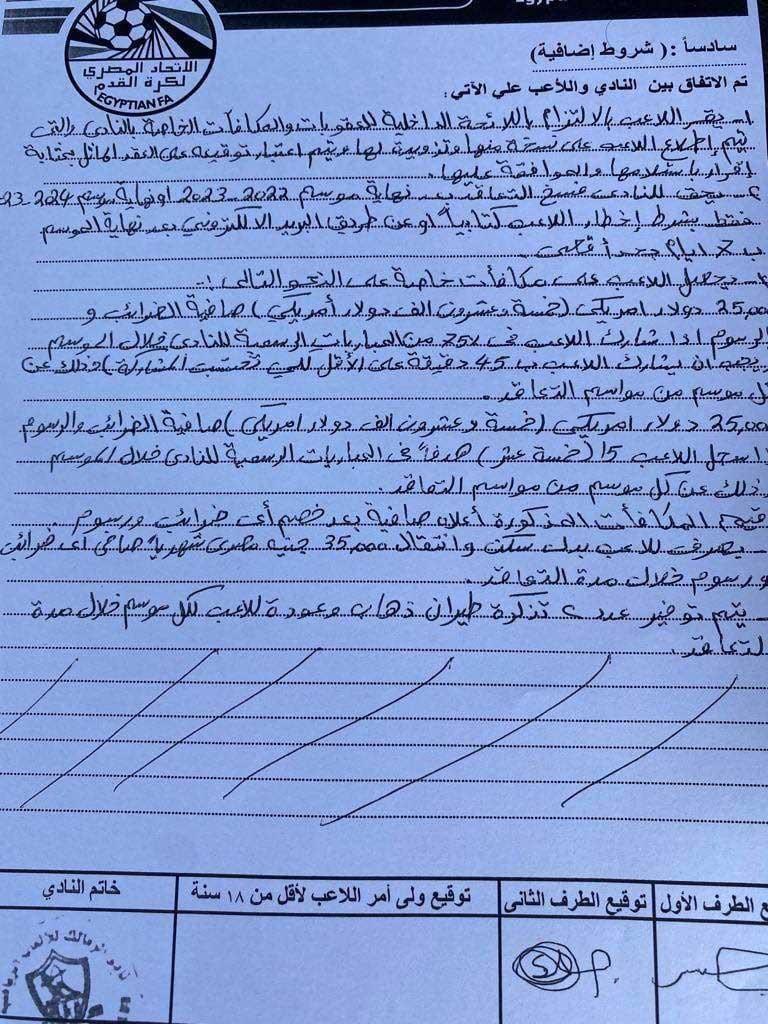 الاتحاد المصري
لكرة القدم
EGYPTIAN FA
سادساً : ( شروط إضافية)
تم الاتفاق بين النادي واللاعب علي الآتي :
١- يقر اللاعب بالالتزام باللائحة الداخلية للعقوبات والمكافآت الخاصة بالنادى والتى
يتم إطلاع اللاعب على نسخة منها وتزويدة لها ويتم اعتبار توقيعه على العقد الماثل بمثابة
إقرار باستلامها والموافقة عليها.
٢- يحق للنادى فسخ التعاقد بعد نهاية موسم 2022-2023 او نهاية موسم 2024-23
فقط بشرط إخطار اللاعب كتابياً او عن طريق البريد الالكترونى بعد نهاية الموسم
ب ٢ ايام بحد أقصى.
٣- يحصل اللاعب على مكافأت خاصة على النحو التالى :-
25,000 دولار امريكي (خمسة وعشرون الف دولار أمريكي) صافية الضرائب و
الرسوم اذا شارك اللاعب فى ٧٥٪ من المباريات الرسمية للنادى خلال الموسم
ويجب ان يشارك اللاعب ب 45 دقيقة على الأقل لكي تحتسب المشاركة) وذلك عن
كل موسم من مواسم التعاقد.
25,000 دولار امريكي (خمسة وعشرون الف دولار امريكي) صافية الضرائب والرسوم
اذا سجل اللاعب 15 (خمسة عشر) هدفاً فى المباريات الرسمية للنادى خلال الموسم
وذلك عن كل موسم من مواسم التعاقد.
قيم المكافأت المذكورة أعلاه صافية بعد خصم أى ضرائب ورسوم
- يصرف للاعب بدل سكن وانتقال 35,000 جنيه مصرى شهرياً صافى أى ضرائب
ورسوم خلال مدة التعاقد.
- يتم توفير عدد ٢ تذكرة طيران ذهاب وعودة للاعب لكل موسم خلال مدة
التعاقد.
ع الطرف الأول
توقيع الطرف الثانى
توقيع ولى أمر اللاعب لأقل من ١٨ سنة
خاتم النادي
نادي الزمالك للألعاب الرياضية